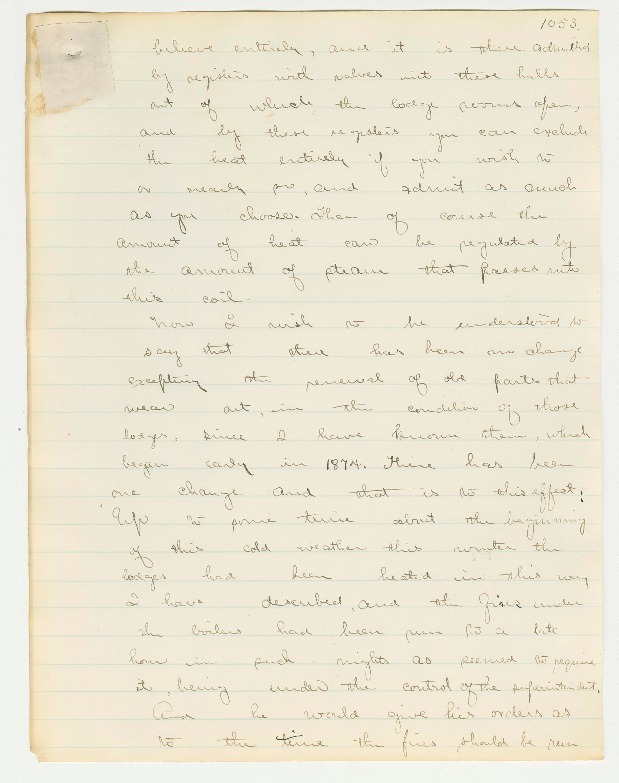 1053.
believe entirely, and it is there admitted
by registers with valves into these halls
out of which the lodge rooms open,
and by these registers you can exclude
the heat entirely if you wish to
or nearly so, and admit as much
as you choose. Then of course the
amount of heat can be regulated by
the amount of steam that passes into
this coil.
Now I wish to be understood to
say that there has been no change
excepting the renewal of old parts that
wear out, in the condition of those
lodges, since I have known them, which
began early in 1874. There has been
one change and that is to this effect:
Up to some time about the beginning
of this cold weather this winter the
lodges had been heated in this way
I have described, and the fires under
the boilers had been run to a late
hour in such nights as seemed to require
it, being under the control of the superintendent.
And he would give his orders as
to the time the fires should be run